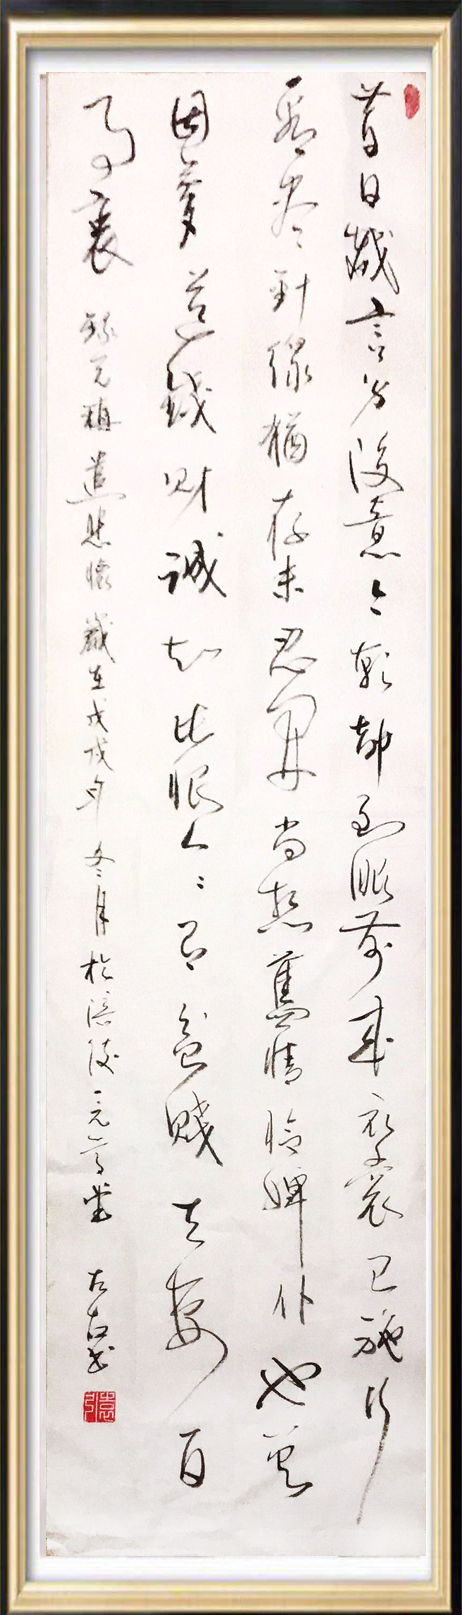 昔日戲言身後意今朝都到眼前來衣裳已施行
看尽針線猶存未忍開尚想舊情怜婢仆也曾
因夢送錢財誠知此恨人人有貧賤夫妻百
事哀 錄元稹遣悲懷 歲在戊戌年冬月於涪陵